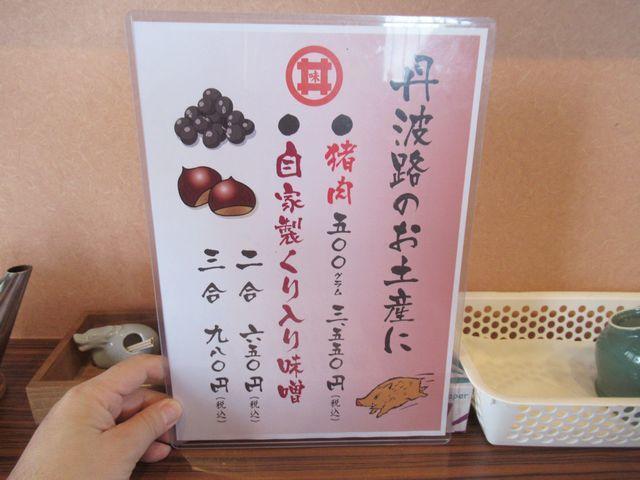 丹波路のお土産に
味
●猪肉 五〇〇グラム 三、五五〇円(税込)
●自家製くり入り味噌
二合 六五〇円(税込)
三合 九八〇円(税込)
per